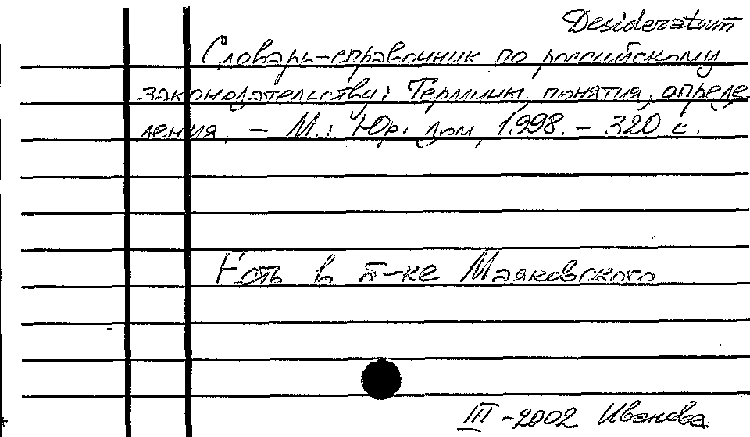 Desideratum
Словарь-справочник по российскому
законодательству: Термины, понятия, опреде
ления. – М.: Юр. Дом, 1998. – 320 с.
Есть в б-ке Маяковского
III -2002 Иванова